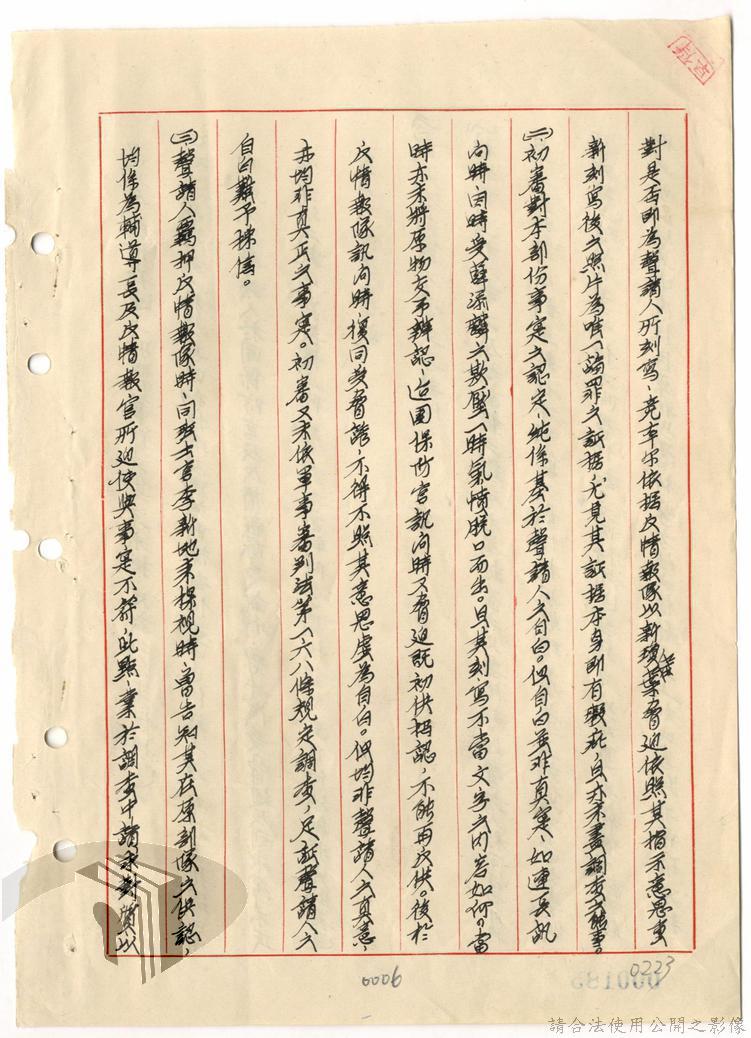 對是否即為聲請人所刻寫,竟率尔依据反情報隊以新球葉脅迫依照其指示意思重
新刻寫後之照片為唯一論罪之証据尤見其証据本身即有瑕疵,且亦未盡調查之能事。
㈡初審對本部份事實之認定,純係基於聲請人之自白。但自白並非真實、如連長訊
問時,因時受蘇添麟之欺壓一時氣憤脫口而出。且其刻寫不當文字之內容如何。當
時亦未將原物交予辨認,迨團保防官訊問時又脅迫既初供招認,不能再反供。後於
反情報隊訊問時,復同受脅誘,不得不照其意思虛為自白。但均非聲請人之真意,
亦均非真正之事實。初審又未依軍事審判法第一六八條規定調查,足証聲請人之
自白難予採信。
㈢聲請人羈押反情報隊時,同班士官李新地來探視時,曾告知其在原部隊之供認,
均係為輔導長及反情報官所迫使與事實不符,此點,業於調查中請求對質以
0006
0223
000185
請合法使用公開之影像